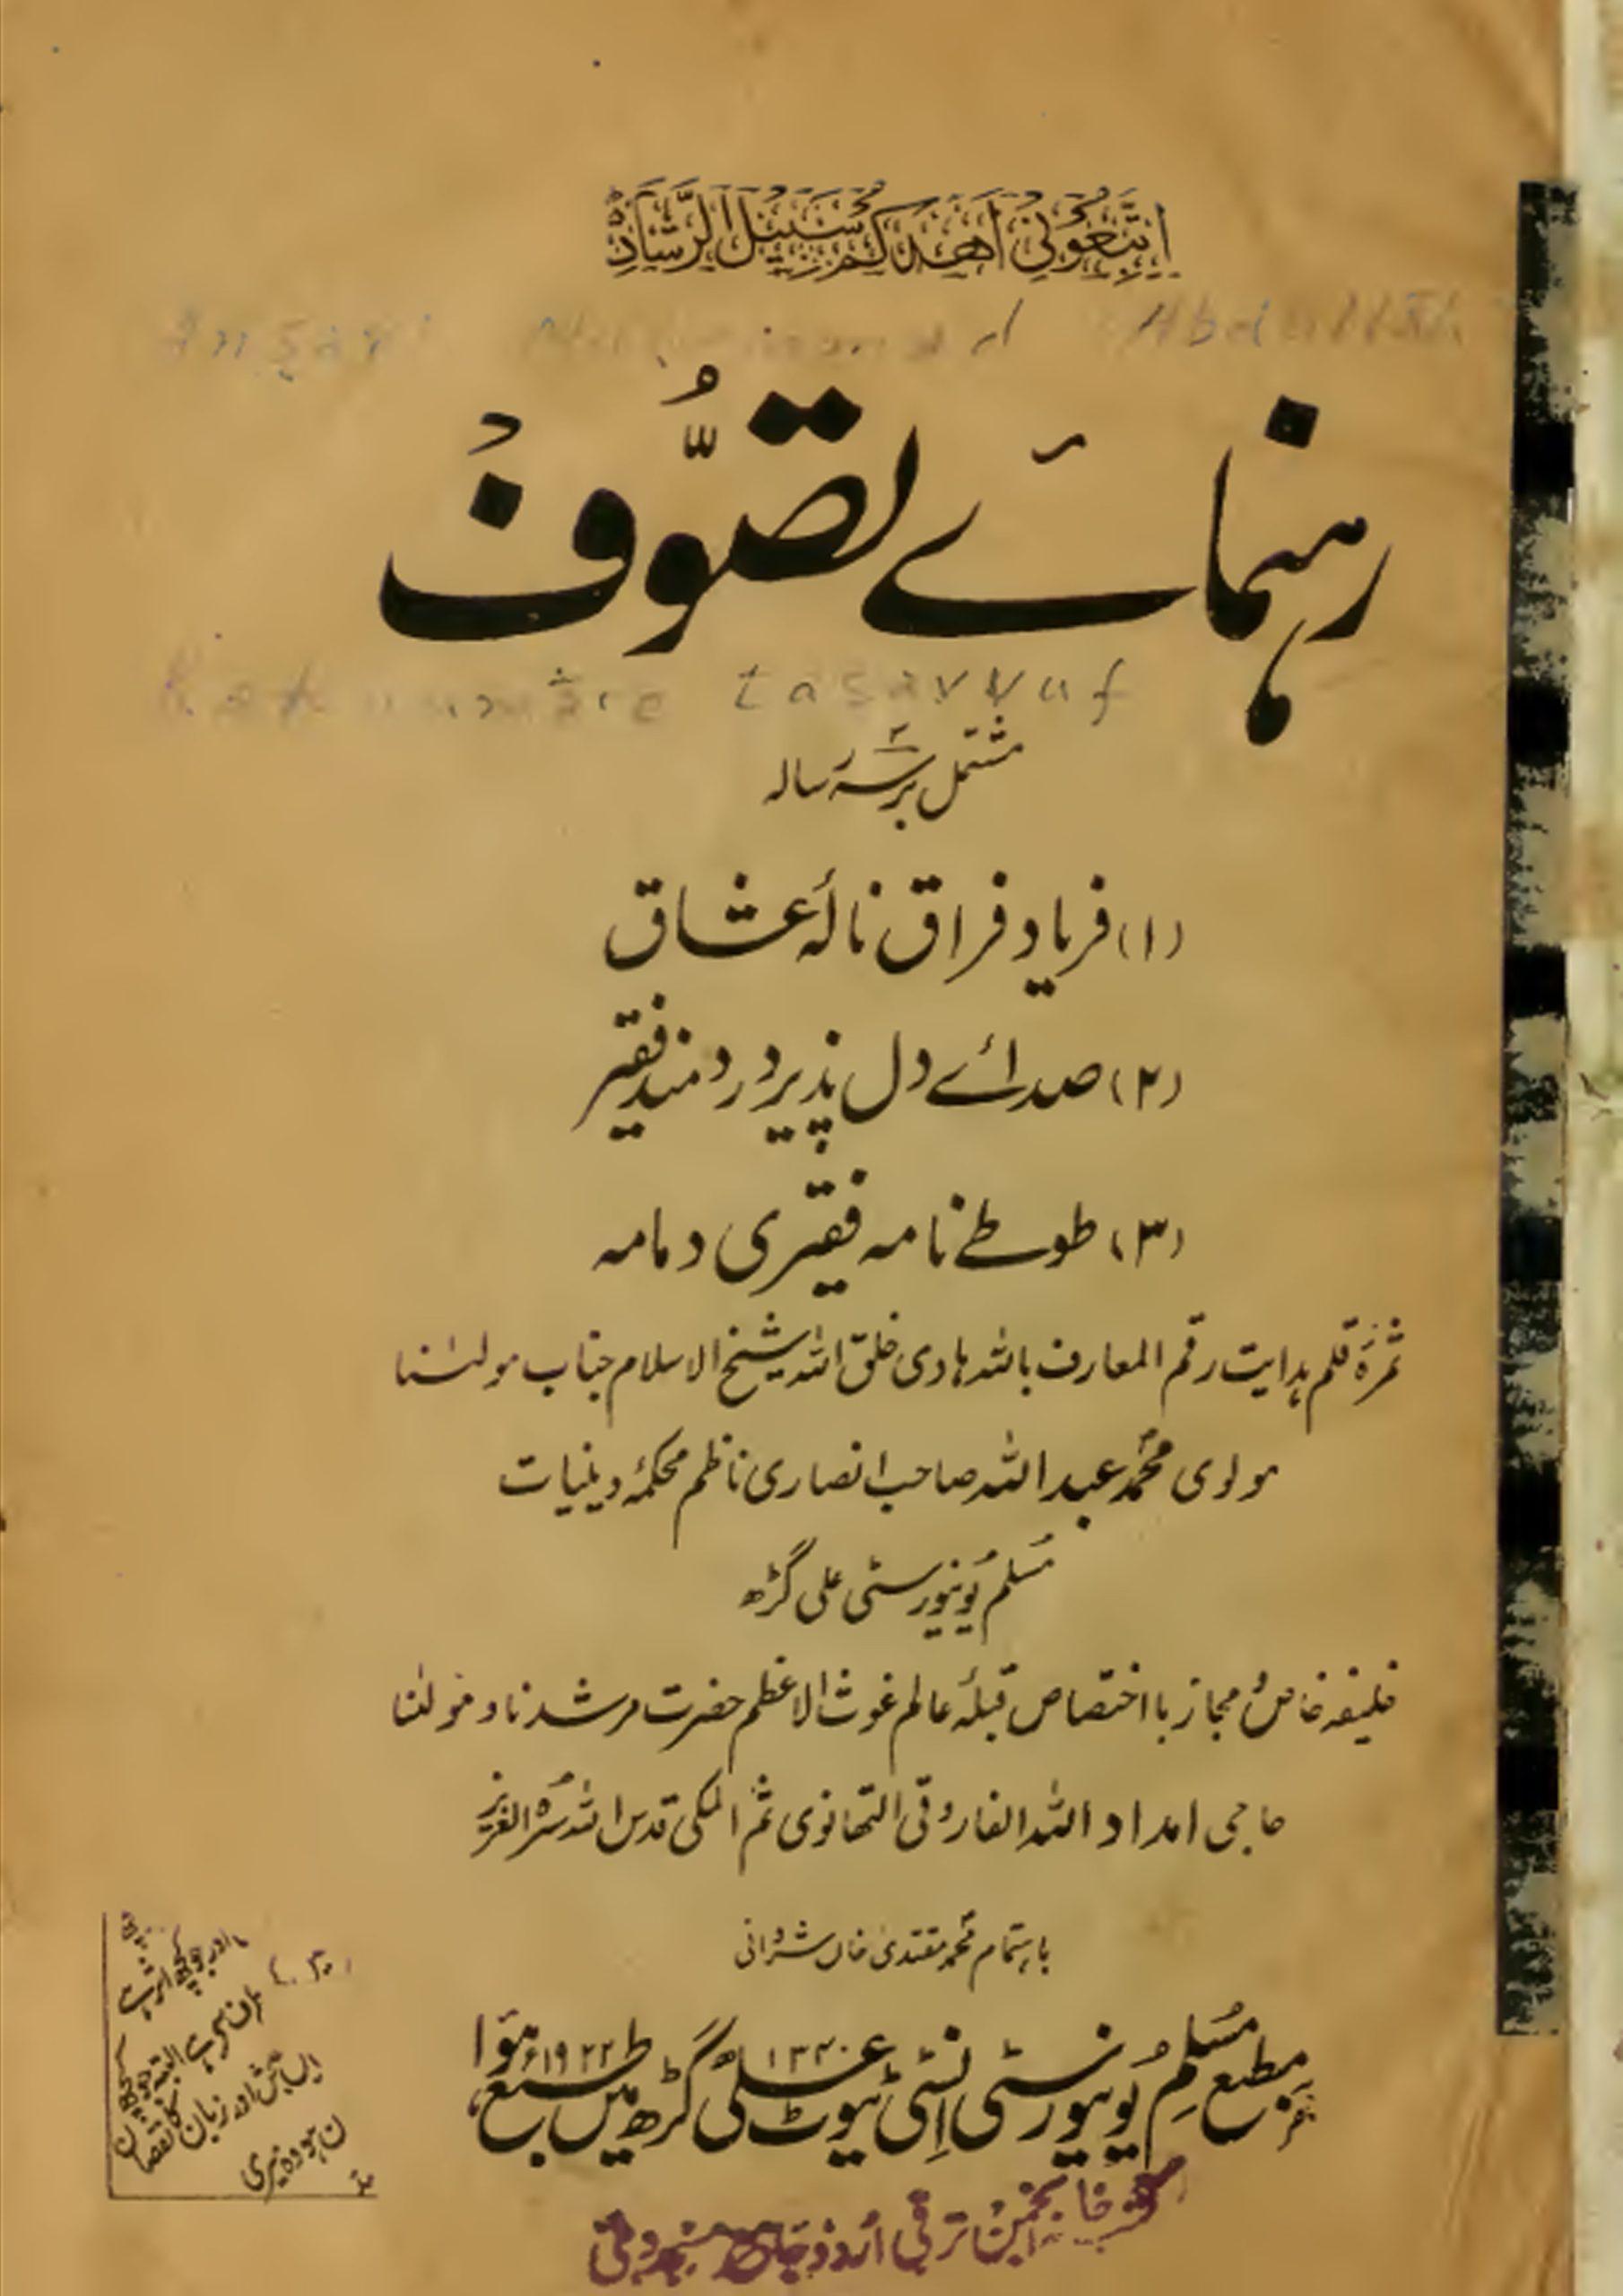 اِتَّبِعُونِ اَهْدِكُمْ سَبِيْلَ الرَّشَادِ
Ansari Muhammad Abdullah
رہنمائے تصوّف
Rahnumāre taṣavvuf
مشتمل بر سہ رسالہ
(۱) فریاد فراق نالۂ عشاق
(۲) صدائے دل پذیر دردمند فقیر
(۳) طوطے نامہ فقیری دمامہ
ثمرۂ قلم ہدایت رقم المعارف باللہ ہادی خلق اللہ شیخ الاسلام جناب مولٰنا
مولوی محمد عبداللہ صاحب انصاری ناظم محکمۂ دینیات
مُسلم یُونیورسٹی علی گڑھ
خلیفہ خاص مجاز بااختصاص قبلۂ عالم غوث الاعظم حضرت مرشدنا ومولٰنا
حاجی امداد اللہ الفاروقی التھانوی ثم المکی قدس اللہ سرہ العزیز
باہتمام محمد مقتدیٰ خاں شروانی
مطبع مُسلم یُونیورسٹی اِنسٹی ٹیوٹ علی گڑھ میں طبع ہوا
۱۳۴۰ ۱۹۲۲ء
کتب خانہ انجمن ترقی اُردو جامع مسجد دہلی
اور جو کچھ اثر ہے
البتہ جو کچھ
اور زبان کا نقصان